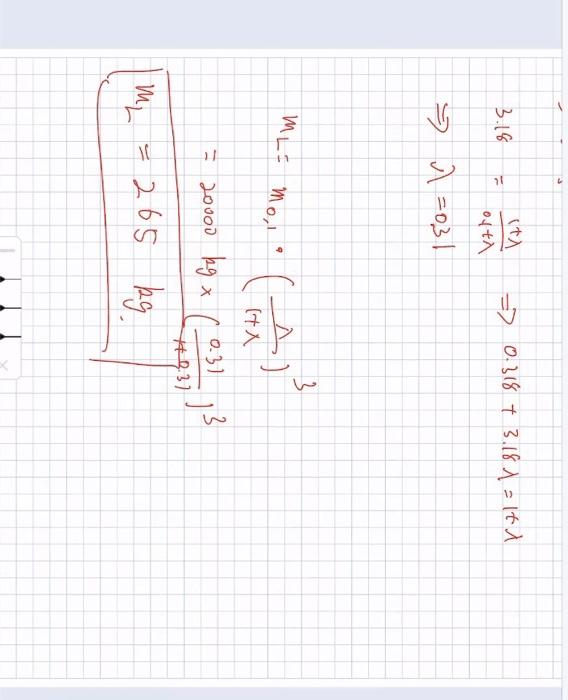 3.18 = (1+λ)/(0.1+λ) ⇒ 0.318 + 3.18λ = 1+λ
⇒ λ = 0.31
m_L = m_0,1 · (λ/(1+λ))^3
= 20000 kg × (0.31/(1+0.31))^3
m_L = 265 kg.